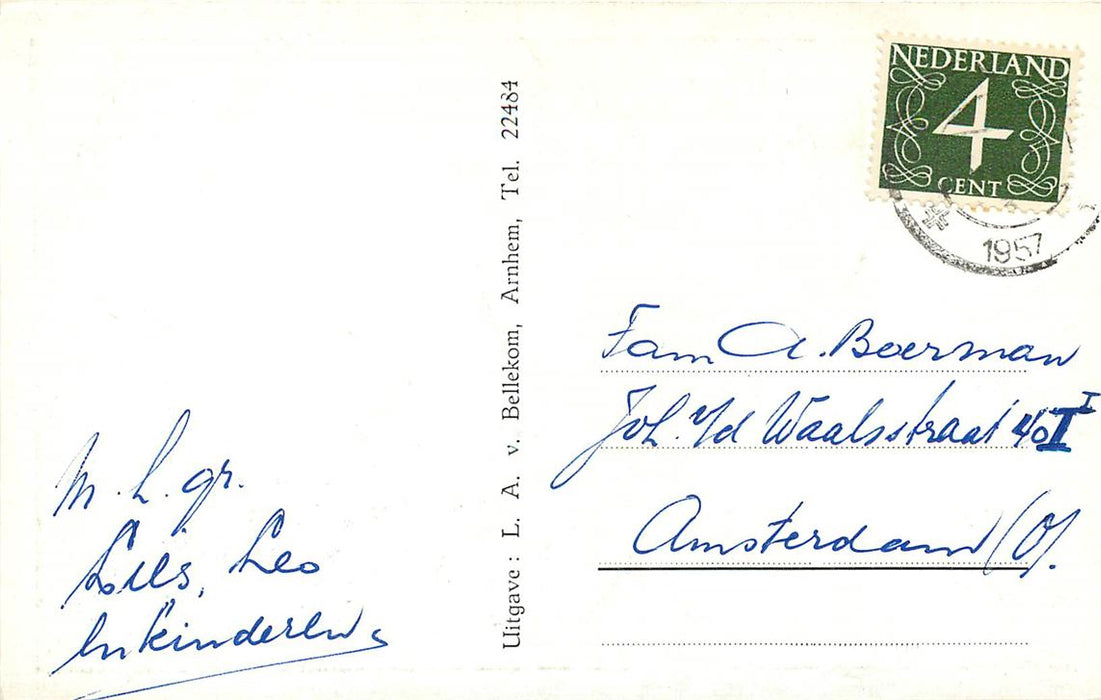 M. h. gr.
Lies, Leo
en kinderen
Uitgave: L. A. v. Bellekom, Arnhem, Tel. 22484
NEDERLAND
4
CENT
1957
Fam A. Boerman
Joh. v/d Waalsstraat 40 I
Amsterdam (O).